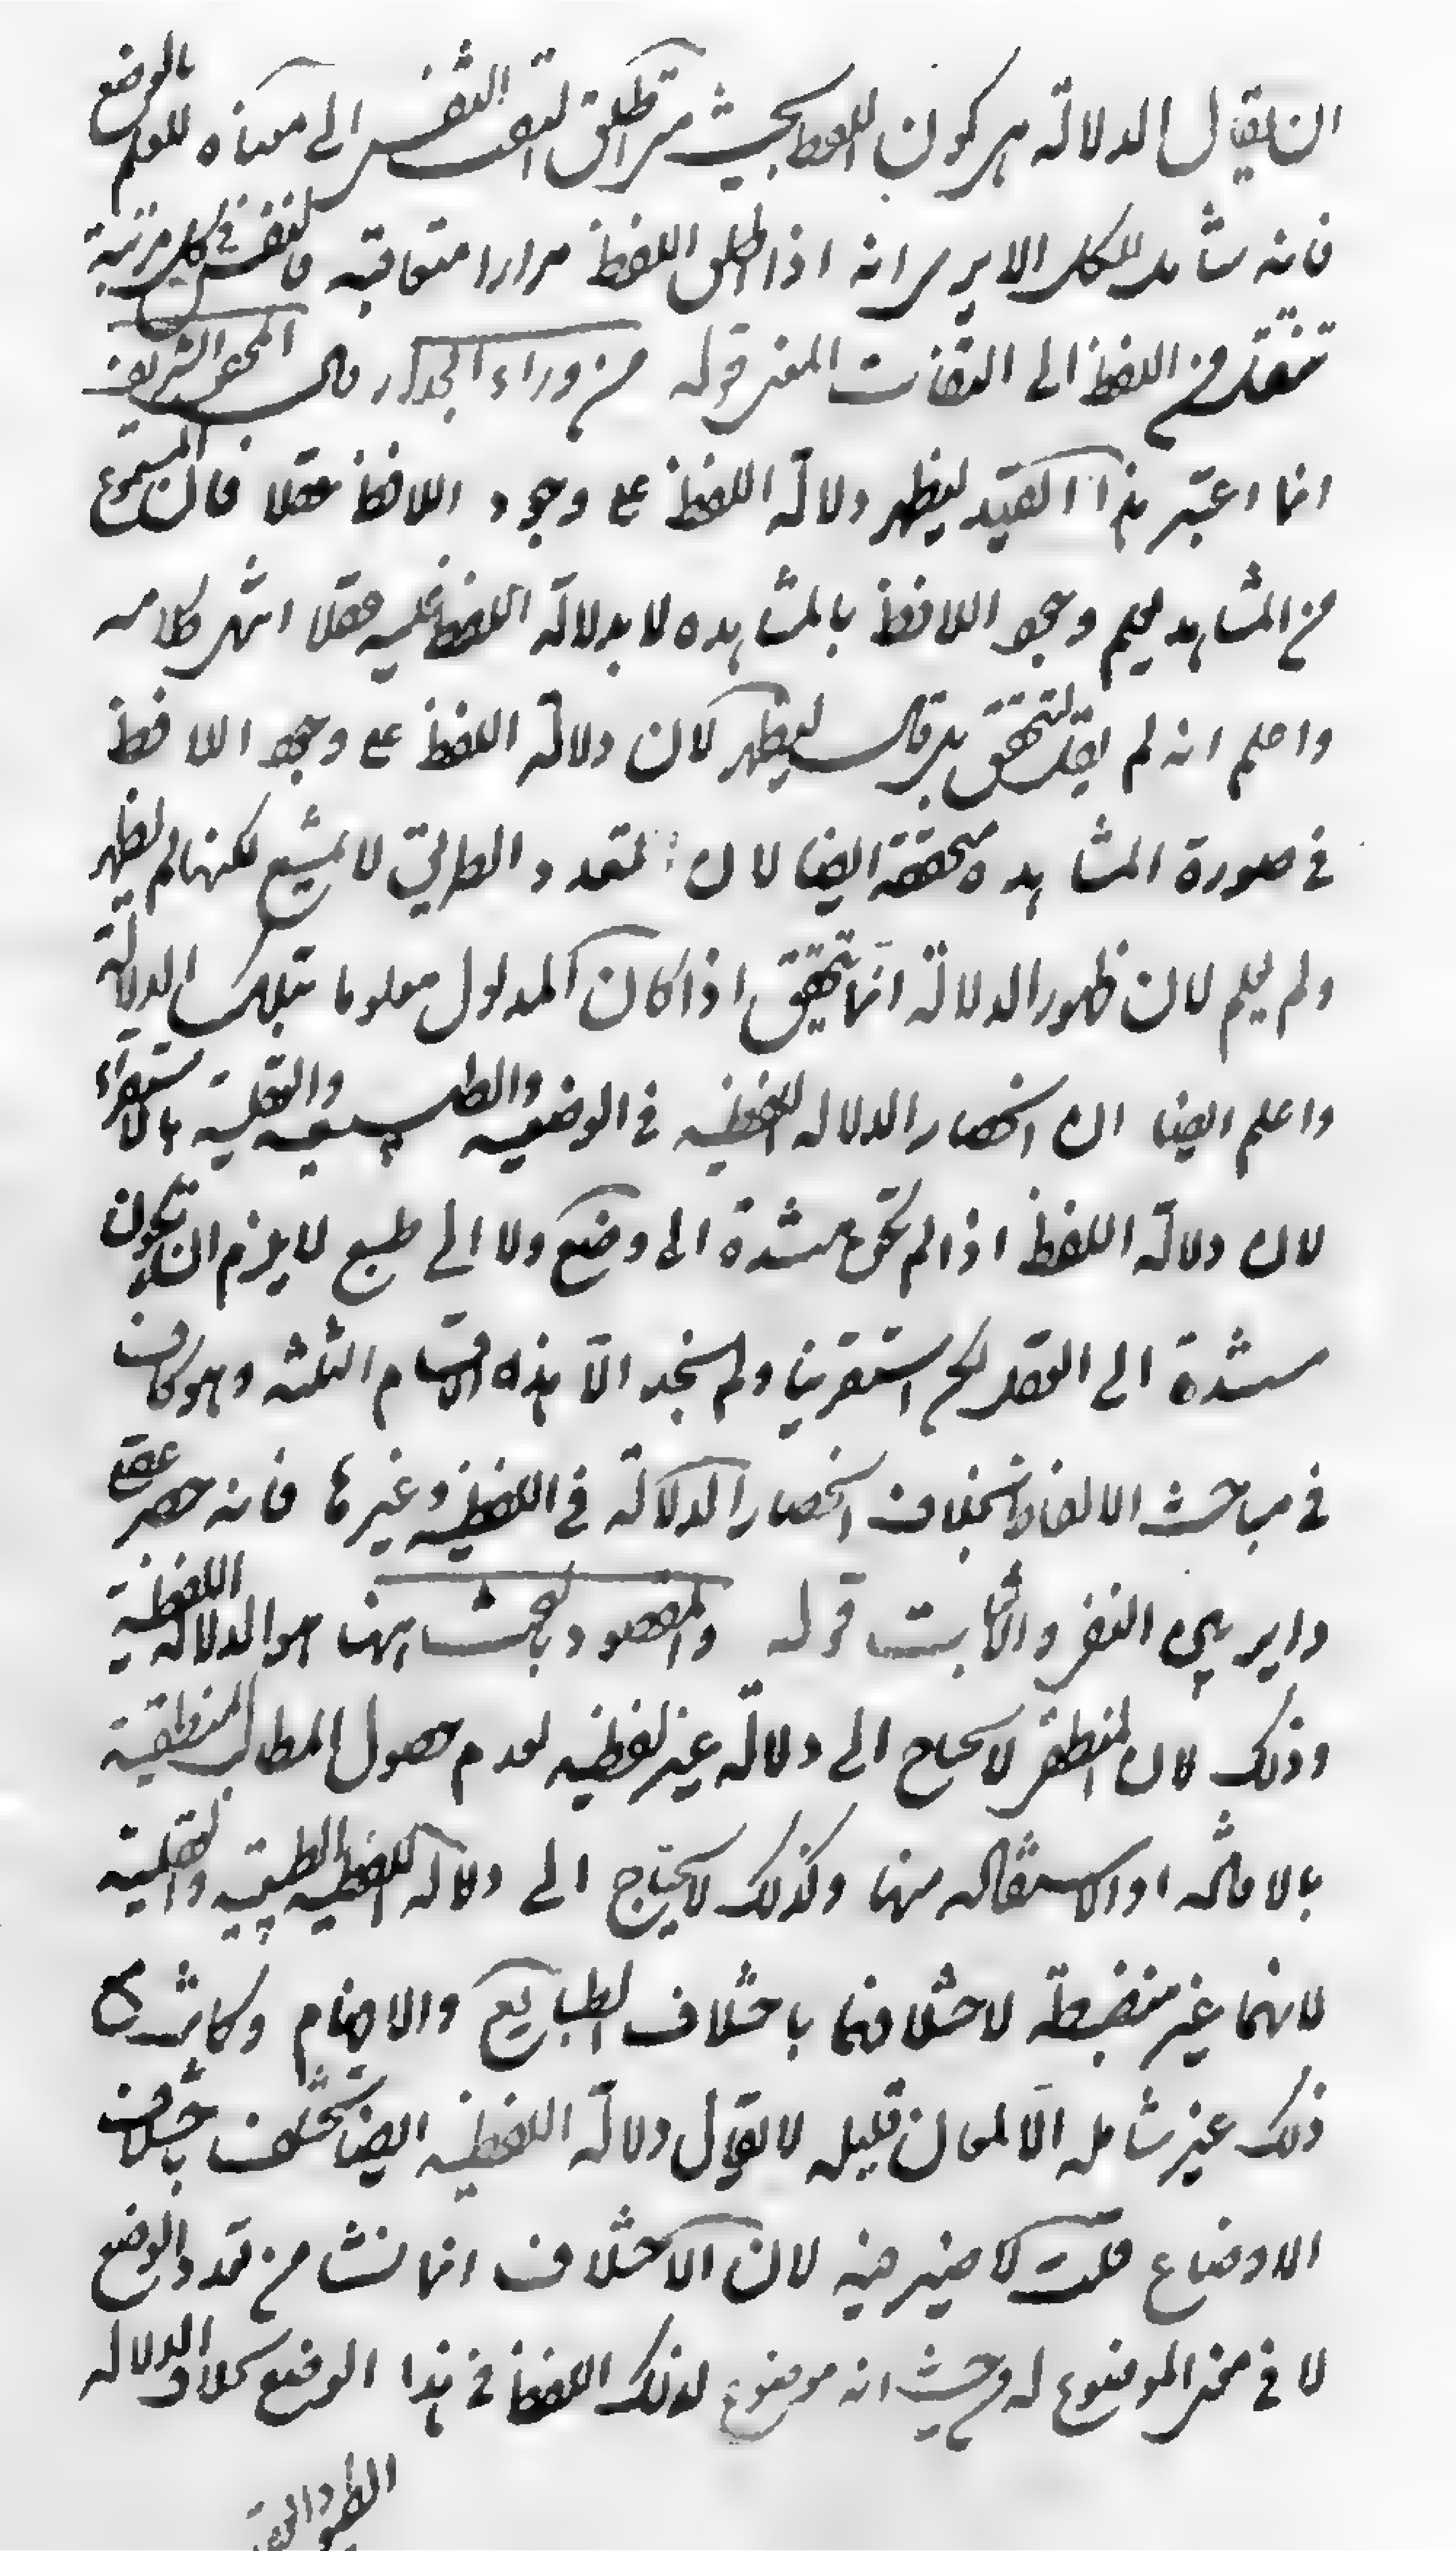 ان يقال الدلالة هي كون اللفظ بحيث متى اطلق التفت النفس الى معناه للعلم بالوضع
فانه شامل للكل الا يرى انه اذا اطلق اللفظ مرارا متعاقبة فالنفس في كل مرتبة
تنتقل من اللفظ الى التفات المعنى قوله من وراء الجدار قال المحقق الشريف
انما اعتبر هذا القيد ليظهر دلالة اللفظ على وجود اللافظ عقلا فان المسموع
من المشاهد يعلم وجود اللافظ بالمشاهدة لا بدلالة اللفظ عليه عقلا انتهى كلامه
واعلم انه لم يقل ليتحقق بل قال ليظهر لان دلالة اللفظ على وجود اللافظ
في صورة المشاهدة متحققة ايضا لان تعدد الطريق لا يمتنع لكنها لم يظهر
ولم يعلم لان ظهور الدلالة انما يتحقق اذا كان المدلول معلوما بتلك الدلالة
واعلم ايضا ان انحصار الدلالة اللفظية في الوضعية والطبيعية والعقلية بالاستقراء
لان دلالة اللفظ اذا لم تكن مستندة الى وضع ولا الى طبع لا يلزم ان تكون
مستندة الى العقل لكن استقرينا ولم نجد الا هذه الاقسام الثلثة وهو كاف
في مباحث الالفاظ بخلاف انحصار الدلالة في اللفظية وغيرها فانه حصر عقلي
داير بين النفي والاثبات قوله والمقصود بالبحث ههنا هو الدلالة اللفظية
وذلك لان المنطقي لا يحتاج الى دلالة غير لفظية لعدم حصول المطالب المنطقية
بالافادة او الاستفادة منها وكذلك لا يحتاج الى دلالة اللفظية الطبيعية والعقلية
لانهما غير منضبطة لاختلافهما باختلاف الطبايع والافهام وكانت مع
ذلك غير شاملة الا لمعان قليلة لا يقال دلالة اللفظية ايضا تختلف باختلاف
الاوضاع قلت لا ضير فيه لان الاختلاف انما نشا من تعدد الوضع
لا في معنى الموضوع له من حيث انه موضوع لذلك اللفظ في هذا الوضع بخلاف الدلالة